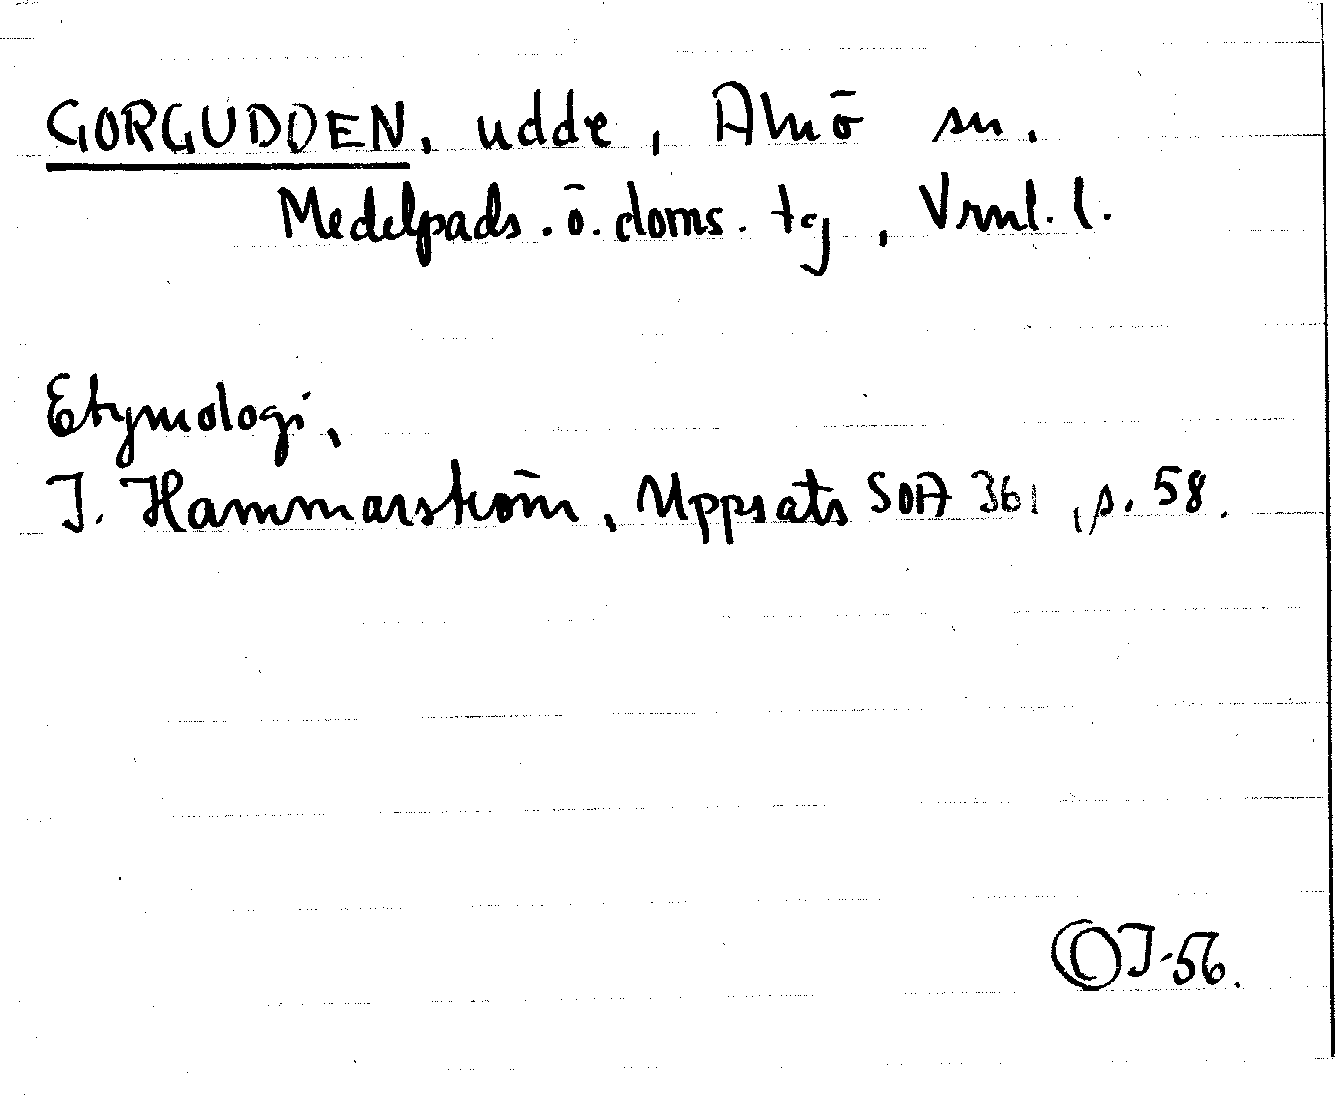 GORGUDDEN, udde, Alnö sn.
Medelpads. ö. doms. tg, Vrnl. l.
Etymologi,
I. Hammarström, Uppsats SOA 361, s. 58.
OI-56.